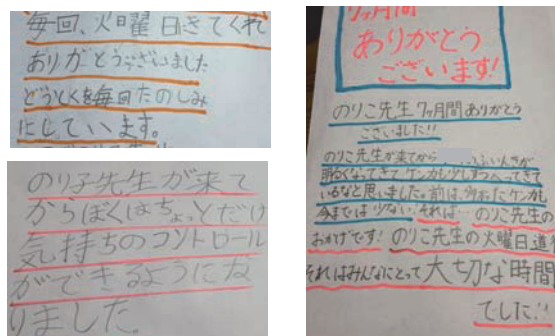 毎回、火曜日きてくれ
ありがとうございました
どうとくを毎回たのしみ
にしています。
のり子先生が来て
からぼくはちょっとだけ
気持ちのコントロール
ができるようにな
りました。
7ヶ月間
ありがとう
ございます!
のりこ先生7ヶ月間ありがとう
ございました!!
のりこ先生が来てから ふんいきが
明るくなってきてケンカも少しずつへってきて
いるなと思いました。前は、 ケンカも
今までは少ない!それは…のりこ先生の
おかげです!のりこ先生の火曜日道
それはみんなにとって大切な時間
でした!!